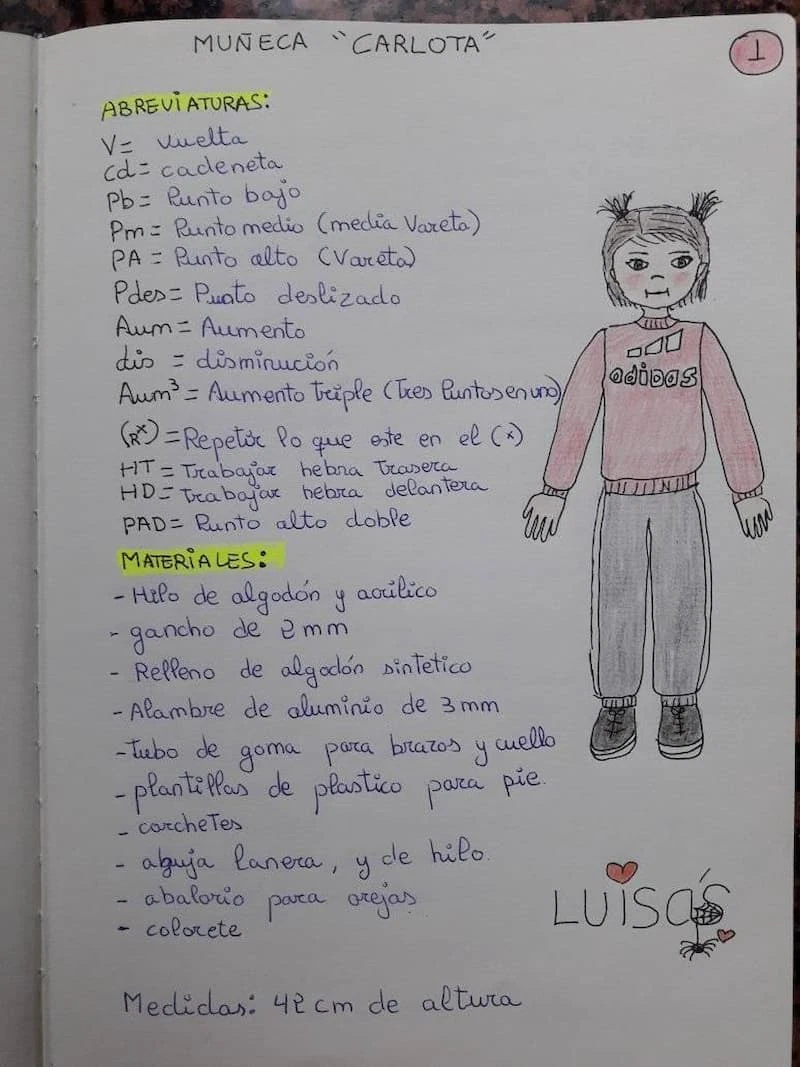 MUÑECA "CARLOTA"
1
ABREVIATURAS:
V= vuelta
cd= cadeneta
Pb= Punto bajo
Pm= Punto medio (media Vareta)
PA= Punto alto (Vareta)
Pdes= Punto deslizado
Aum= Aumento
dis = disminución
Aum³= Aumento Triple (Tres Puntos en uno)
(R*)=Repetir lo que este en el (*)
HT= Trabajar hebra Trasera
HD= Trabajar hebra delantera
PAD= Punto alto doble
MATERIALES:
- Hilo de algodón y acrilico
- gancho de 2mm
- Relleno de algodón sintetico
- Alambre de aluminio de 3mm
- tubo de goma para brazos y cuello
- plantillas de plastico para pie.
- corchetes
- aguja lanera, y de hilo.
- abalorio para orejas
- colorete
Medidas: 42 cm de altura
adidas
LUISA'S